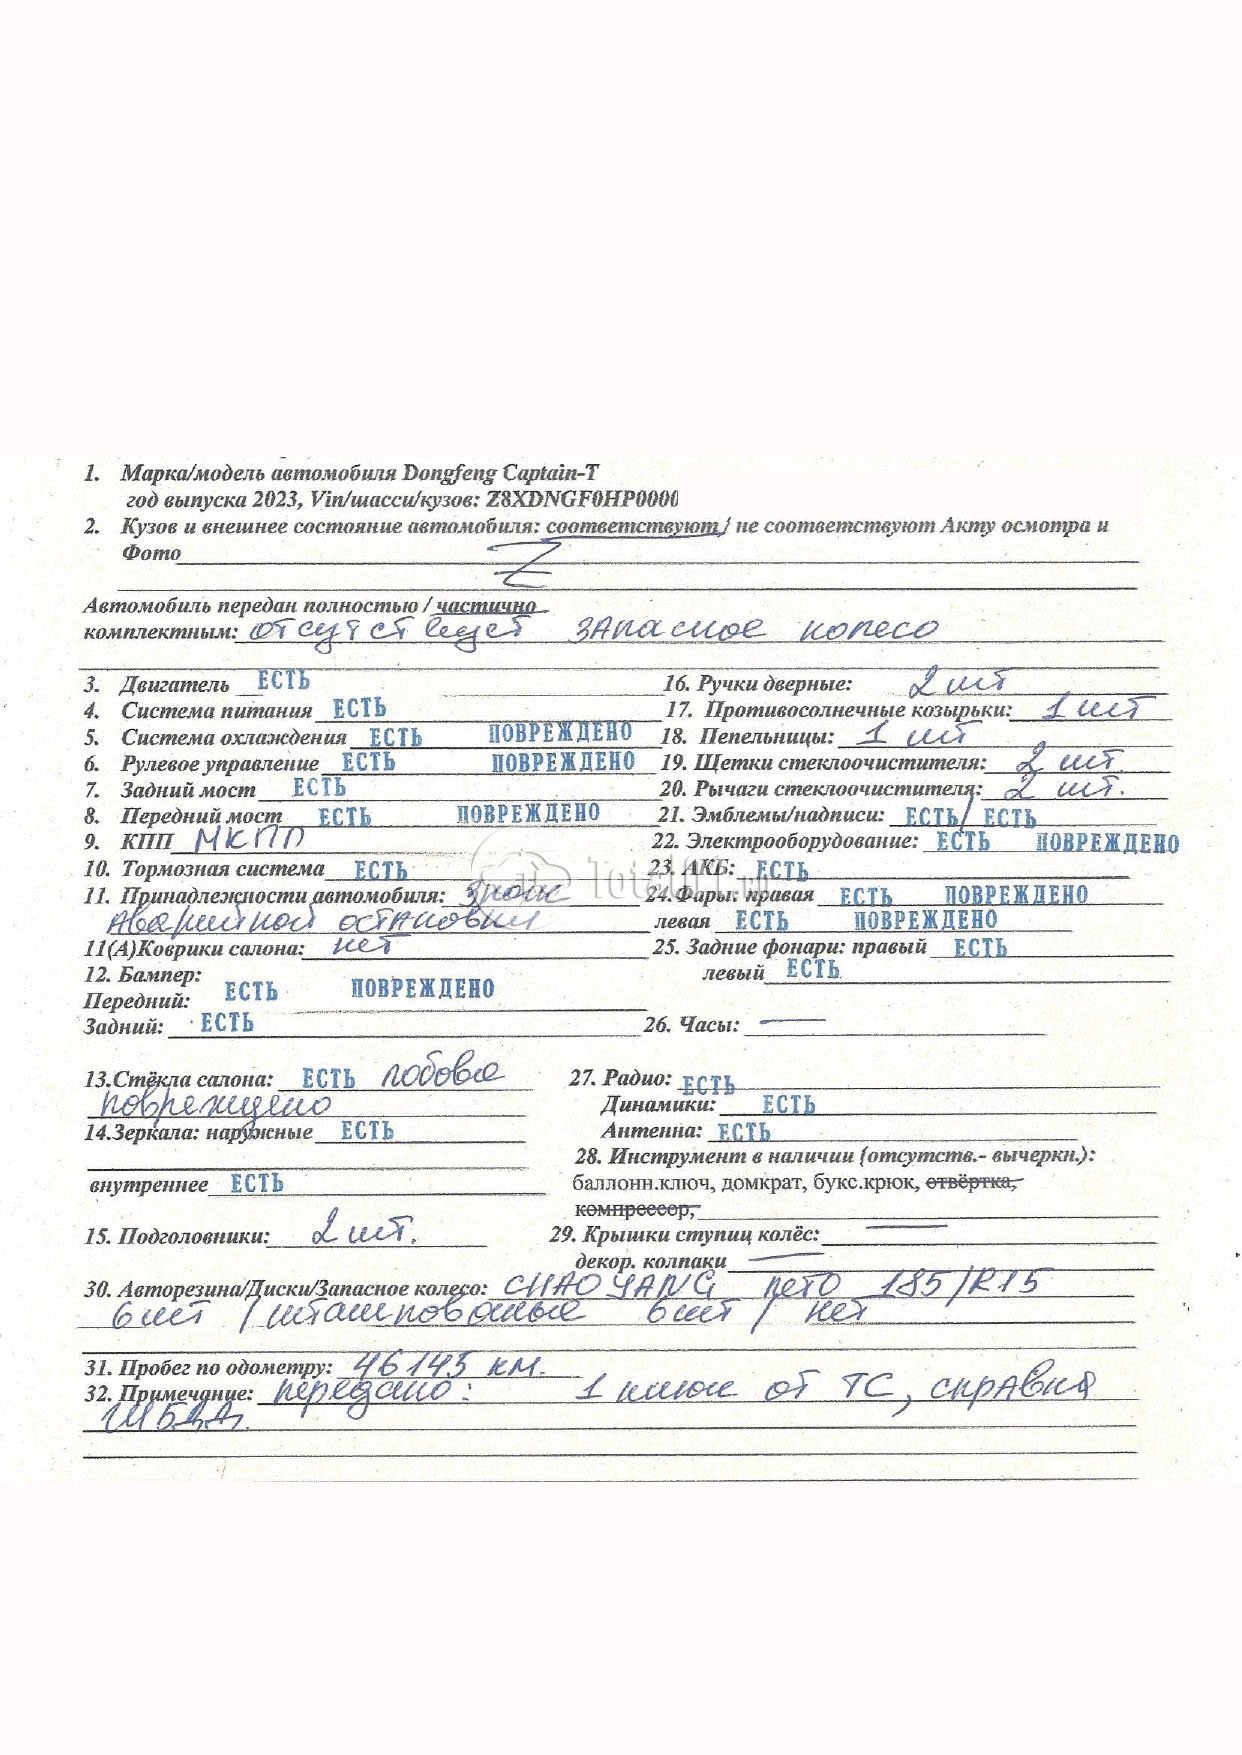 1. Марка/модель автомобиля Dongfeng Captain-T
год выпуска 2023, Vin/шасси/кузов: Z8XDNGF0HP0000
2. Кузов и внешнее состояние автомобиля: соответствуют / не соответствуют Акту осмотра и
Фото
Автомобиль передан полностью / частично
комплектным: отсутствует запасное колесо
3. Двигатель ЕСТЬ
4. Система питания ЕСТЬ
5. Система охлаждения ЕСТЬ ПОВРЕЖДЕНО
6. Рулевое управление ЕСТЬ ПОВРЕЖДЕНО
7. Задний мост ЕСТЬ
8. Передний мост ЕСТЬ ПОВРЕЖДЕНО
9. КПП МКПП
10. Тормозная система ЕСТЬ
11. Принадлежности автомобиля: Знак
Аварийной остановки
11(А)Коврики салона: нет
12. Бампер:
Передний: ЕСТЬ ПОВРЕЖДЕНО
Задний: ЕСТЬ
16. Ручки дверные: 2 шт
17. Противосолнечные козырьки: 1 шт
18. Пепельницы: 1 шт
19. Щетки стеклоочистителя: 2 шт.
20. Рычаги стеклоочистителя: 2 шт.
21. Эмблемы/надписи: ЕСТЬ / ЕСТЬ
22. Электрооборудование: ЕСТЬ ПОВРЕЖДЕНО
23. АКБ: ЕСТЬ
24.Фары: правая ЕСТЬ ПОВРЕЖДЕНО
левая ЕСТЬ ПОВРЕЖДЕНО
25. Задние фонари: правый ЕСТЬ
левый ЕСТЬ
26. Часы: —
Total01.ru
13.Стёкла салона: ЕСТЬ лобовое
повреждено
14.Зеркала: наружные ЕСТЬ
внутреннее ЕСТЬ
15. Подголовники: 2 шт.
27. Радио: ЕСТЬ
Динамики: ЕСТЬ
Антенна: ЕСТЬ
28. Инструмент в наличии (отсутств.- вычеркн.):
баллонн.ключ, домкрат, букс.крюк, отвёртка,
компрессор,
29. Крышки ступиц колёс: —
декор. колпаки —
30. Авторезина/Диски/Запасное колесо: CHAOYANG лето 185/R15
6 шт / штампованые 6 шт / нет
31. Пробег по одометру: 46145 км.
32. Примечание: передано: 1 ключ от ТС, справка